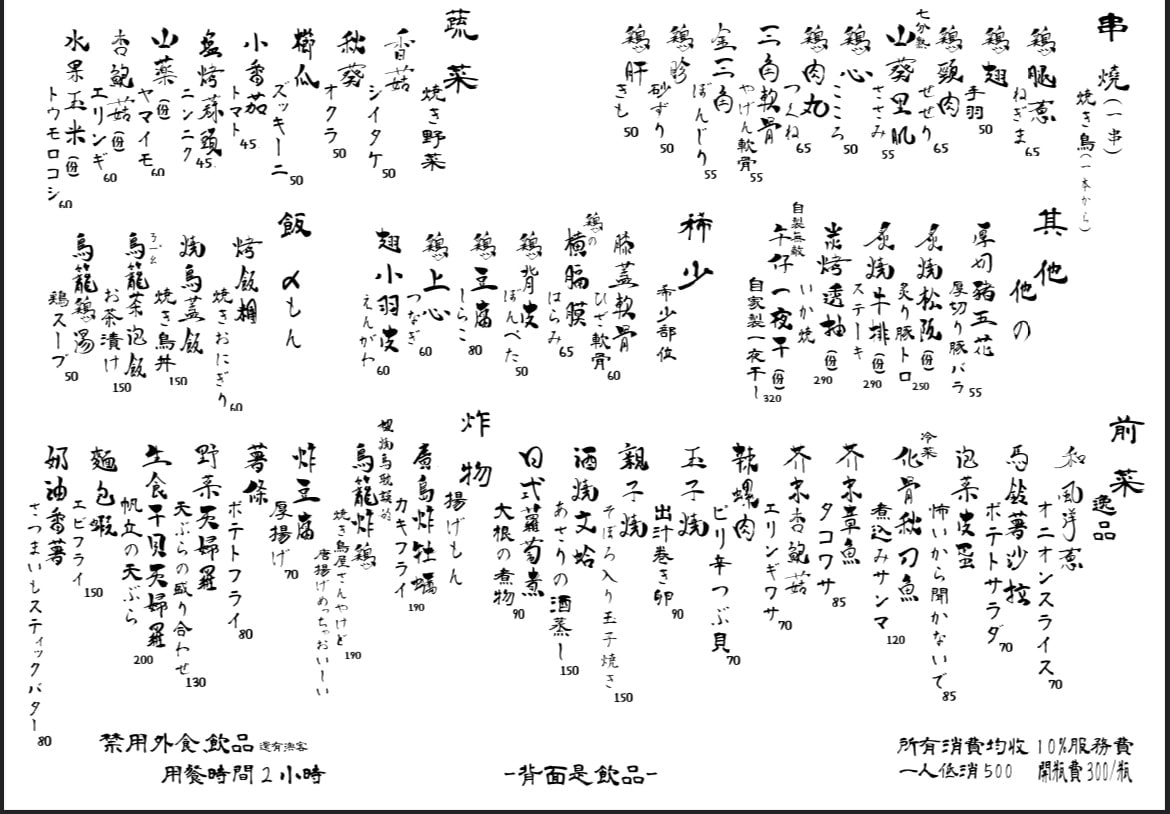 串燒(一串)
焼き鳥(一本から)
鶏腿蔥
ねぎま
65
鶏翅
手羽
50
鶏頸肉
せせり
65
七分熟
山葵里肌
ささみ
55
鶏心
こころ
50
鶏肉丸
つくね
65
三角軟骨
やげん軟骨
55
金三角
ぼんじり
55
鶏胗
砂ずり
50
鶏肝
きも
50
蔬菜
焼き野菜
香菇
シイタケ
50
秋葵
オクラ
50
櫛瓜
ズッキーニ
50
小番茄
トマト
45
塩烤蒜頭
ニンニク
45
山藥(份)
ヤマイモ
60
杏鮑菇(份)
エリンギ
60
水果玉米(份)
トウモロコシ
60
其他
他の
厚切豬五花
厚切り豚バラ
55
炙燒松阪(份)
炙り豚トロ
250
炙燒牛排(份)
ステーキ
290
炭烤透抽(份)
いか焼
290
自製無敵
午仔一夜干(份)
自家製一夜干し
320
稀少
希少部位
膝蓋軟骨
ひざ軟骨
60
鶏の
橫膈膜
はらみ
65
鶏背皮
ぼんぺた
50
鶏豆腐
しらこ
80
鶏上心
つなぎ
60
翅小羽皮
えんがわ
60
飯
〆もん
烤飯糰
焼きおにぎり
60
燒鳥蓋飯
焼き鳥丼
150
烏龍茶泡飯
お茶漬け
150
烏龍鶏湯
鶏スープ
50
前菜
逸品
和風洋蔥
オニオンスライス
70
馬鈴薯沙拉
ポテトサラダ
70
泡菜皮蛋
怖いから聞かないで
85
冷菜
化骨秋刀魚
煮込みサンマ
120
芥末章魚
タコワサ
85
芥末杏鮑菇
エリンギワサ
70
辣螺肉
ピリ辛つぶ貝
70
玉子燒
出汁巻き卵
90
親子燒
そぼろ入り玉子焼き
150
酒燒文蛤
あさりの酒蒸し
150
日式蘿蔔煮
大根の煮物
90
炸物
揚げもん
廣島炸牡蠣
カキフライ
190
烏龍炸鶏
焼き鳥屋さんやけど
唐揚げめっちゃおいしい
190
炸豆腐
厚揚げ
70
薯條
ポテトフライ
80
野菜天婦羅
天ぷらの盛り合わせ
130
生食干貝天婦羅
帆立の天ぷら
200
麵包蝦
エビフライ
150
奶油番薯
さつまいもスティックバター
80
禁用外食飲品
用餐時間2小時
-背面是飲品-
所有消費均收 10%服務費
一人低消500 開瓶費300/瓶